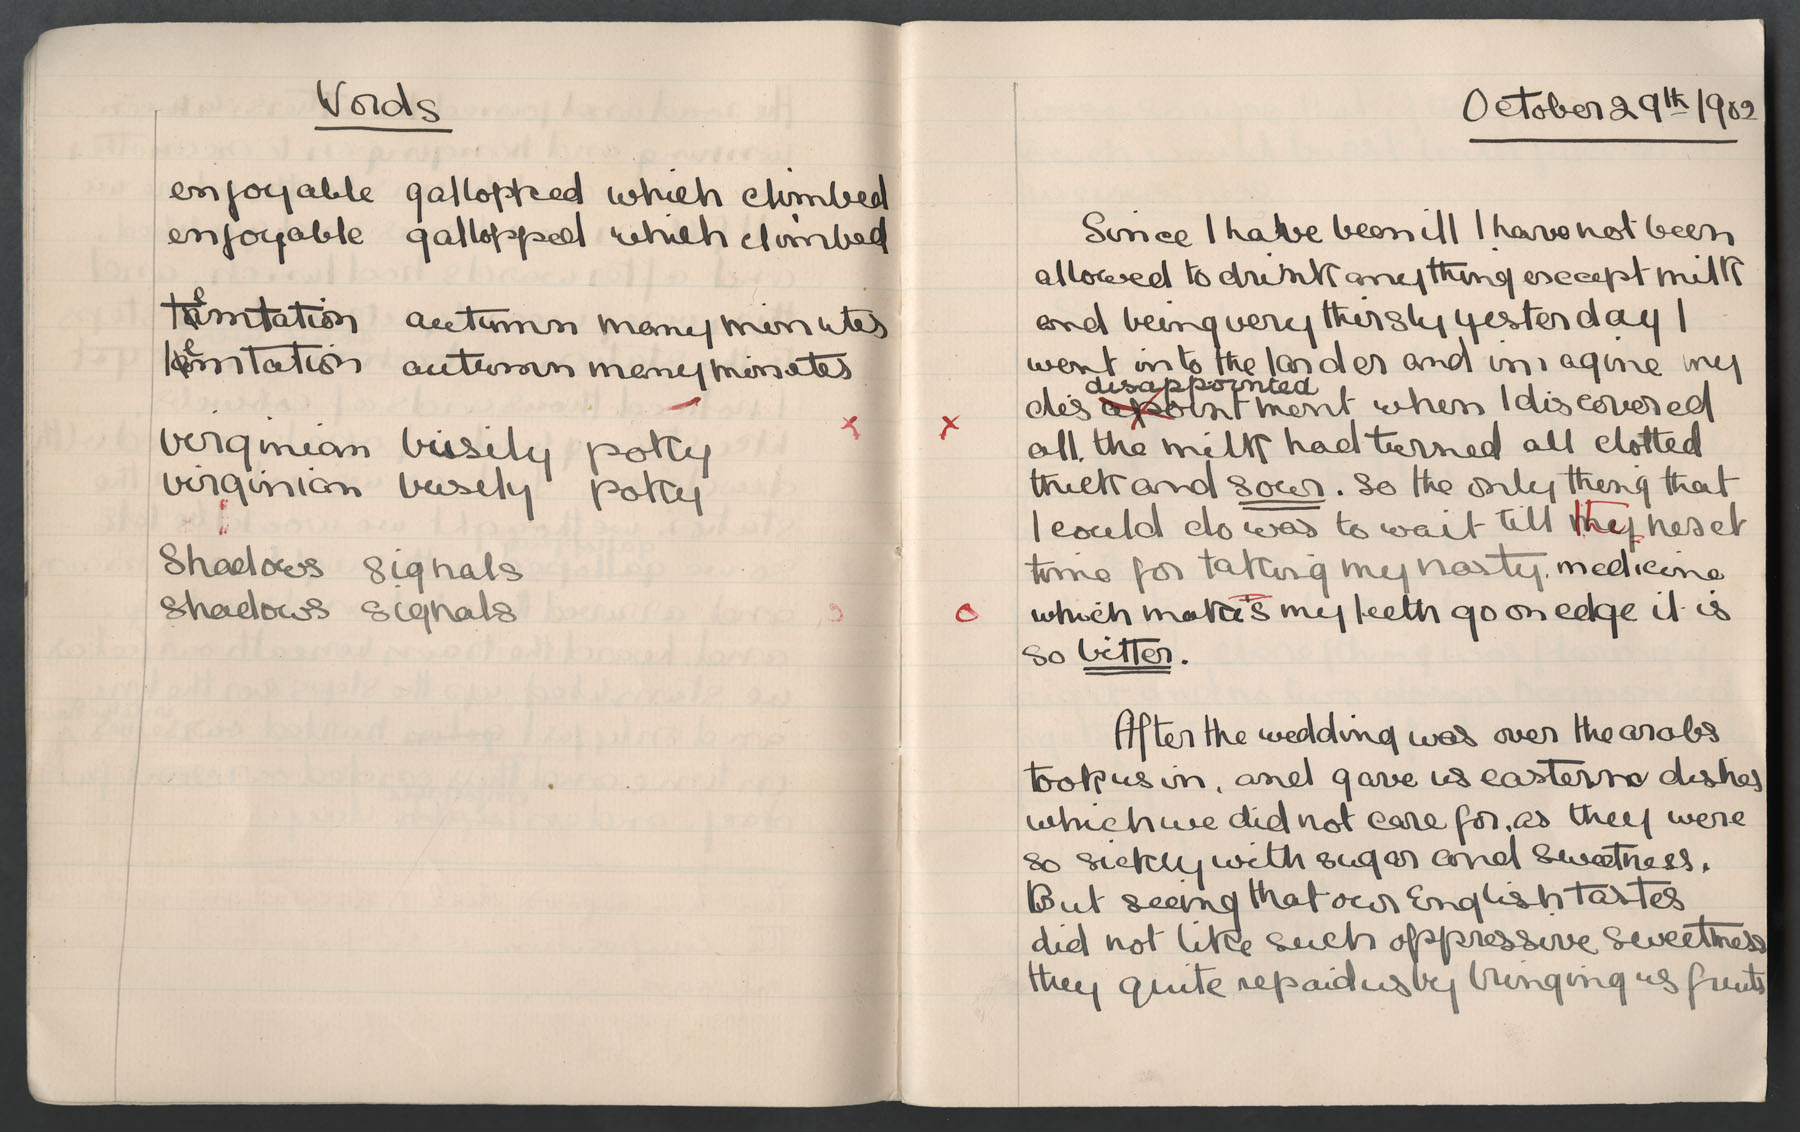 Words
enjoyable gallopped which climbed
enjoyable gallopped which climbed
temtation autumn many minutes
temtation autumn many minutes
virginian busily poky
virginian busely poky
shadows signals
shadows signals
October 29th 1902
Since I have been ill I have not been
allowed to drink anything except milk
and being very thirsty yesterday I
went into the larder and imagine my
disappointed
dis apointment when I discovered
all the milk had turned all clotted
thick and sour. So the only thing that
I could do was to wait till my next
time for taking my nasty medicine
which makes my teeth go on edge it is
so bitter.
After the wedding was over the arabs
took us in, and gave us eastern dishes
which we did not care for, as they were
so sickly with sugar and sweetness.
But seeing that our English tastes
did not like such oppressive sweetness
they quite repaid us by bringing us fruits